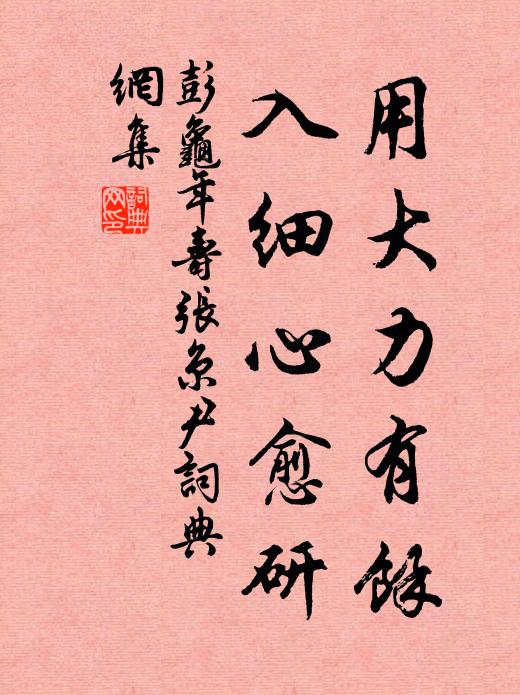 用大力有餘
入細心愈研
彭龜年壽張京尹詞典
網集
詞典網印